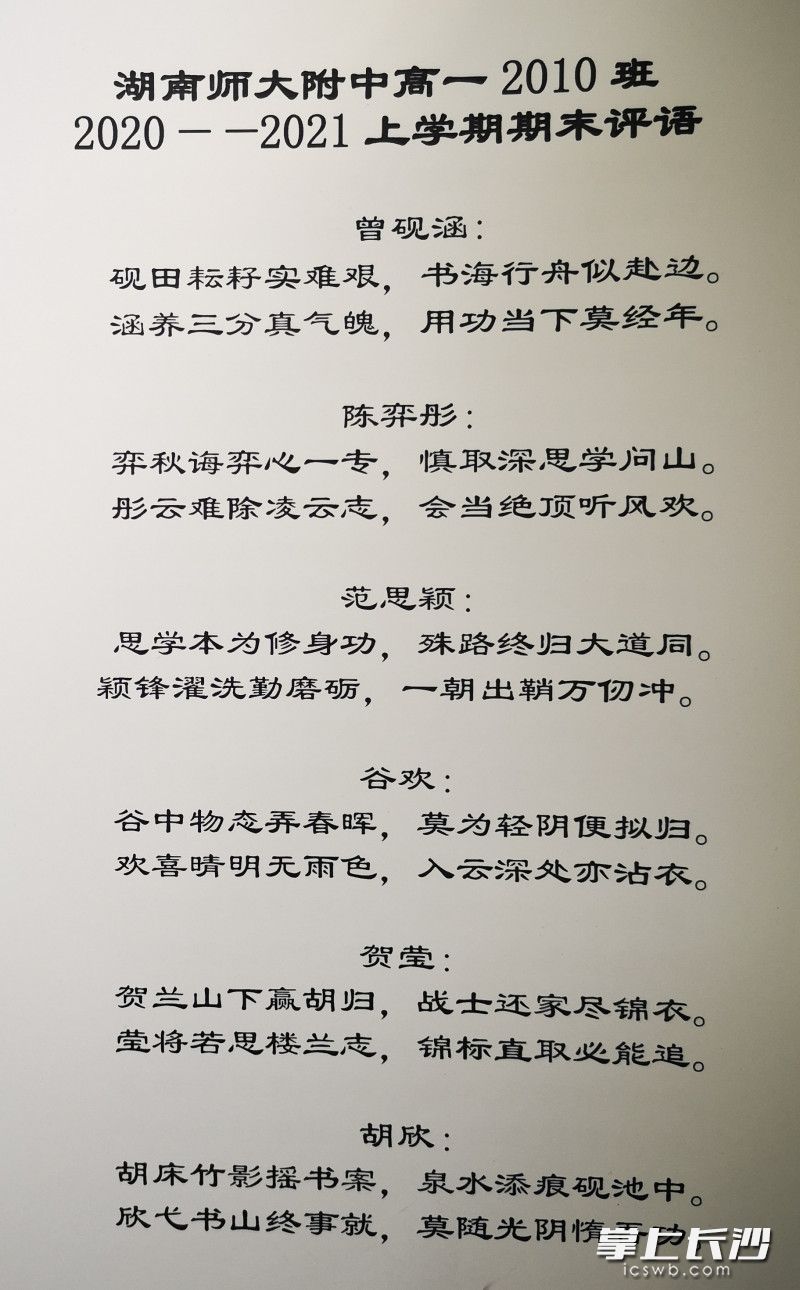 湖南师大附中高一2010班
2020－－2021上学期期末评语
曾砚涵：
砚田耘籽实难艰，书海行舟似赴边。
涵养三分真气魄，用功当下莫经年。
陈弈彤：
弈秋诲弈心一专，慎取深思学问山。
彤云难除凌云志，会当绝顶听风欢。
范思颖：
思学本为修身功，殊路终归大道同。
颖锋濯洗勤磨砺，一朝出鞘万仞冲。
谷欢：
谷中物态弄春晖，莫为轻阴便拟归。
欢喜晴明无雨色，入云深处亦沾衣。
贺莹：
贺兰山下赢胡归，战士还家尽锦衣。
莹将若思楼兰志，锦标直取必能追。
胡欣：
胡床竹影摇书案，泉水添痕砚池中。
欣弋书山终事就，莫随光阴惰 功
掌上长沙
icswb.com